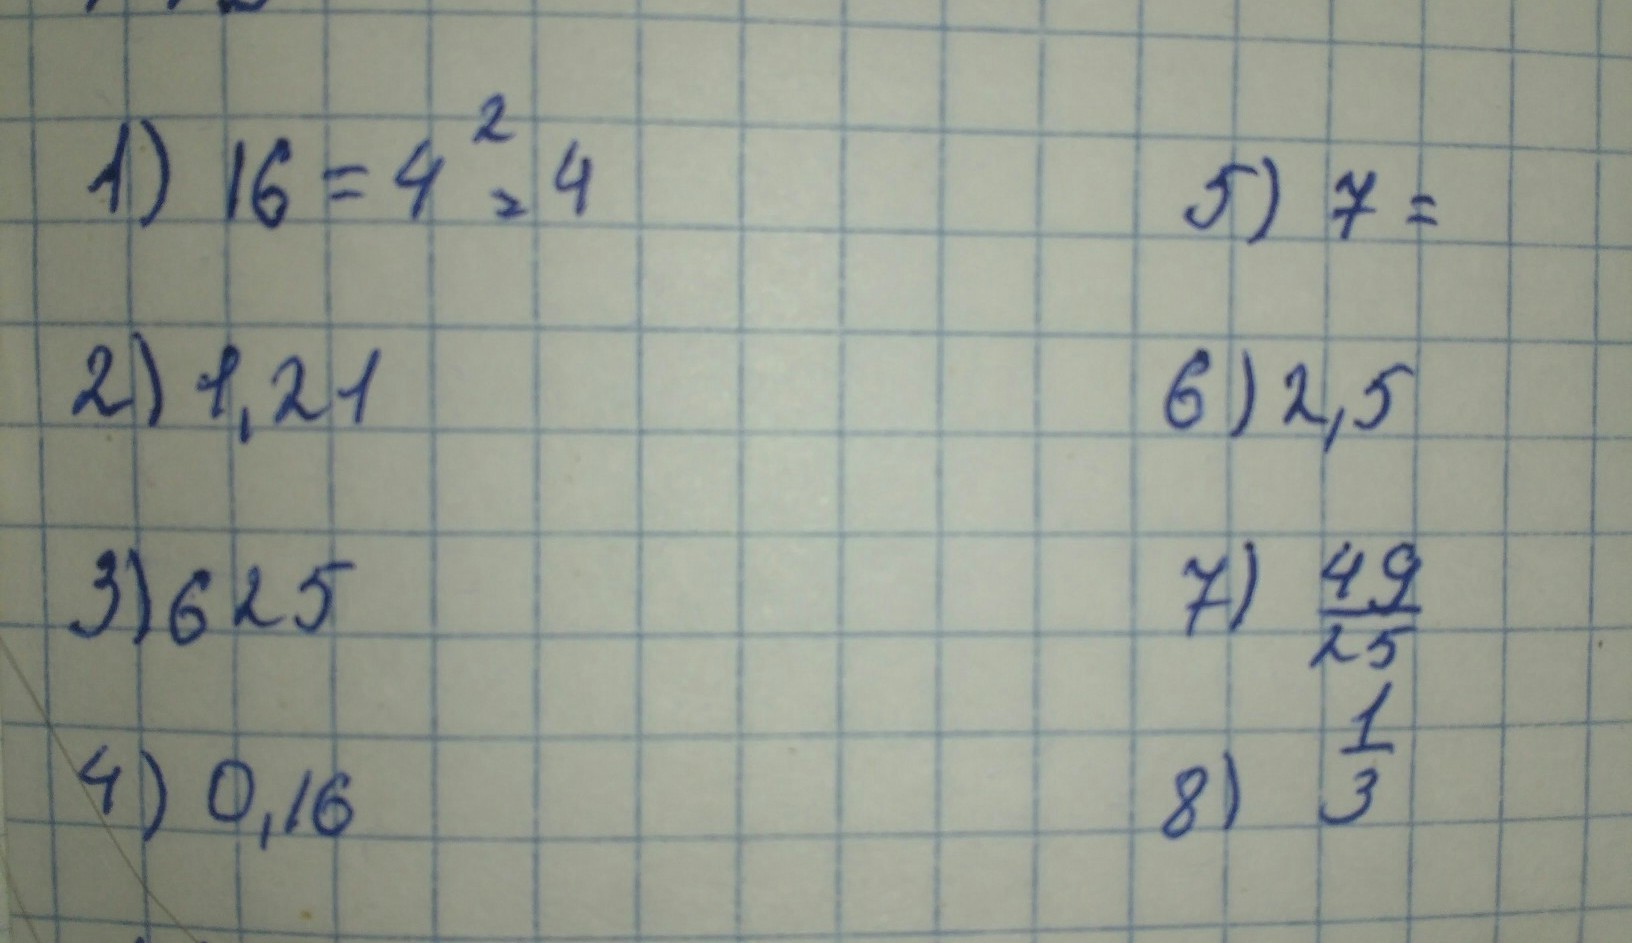 1) 16 = 4² = 4
2) 1,21
3) 625
4) 0,16
5) 7 =
6) 2,5
7) 49/25
8) 1/3